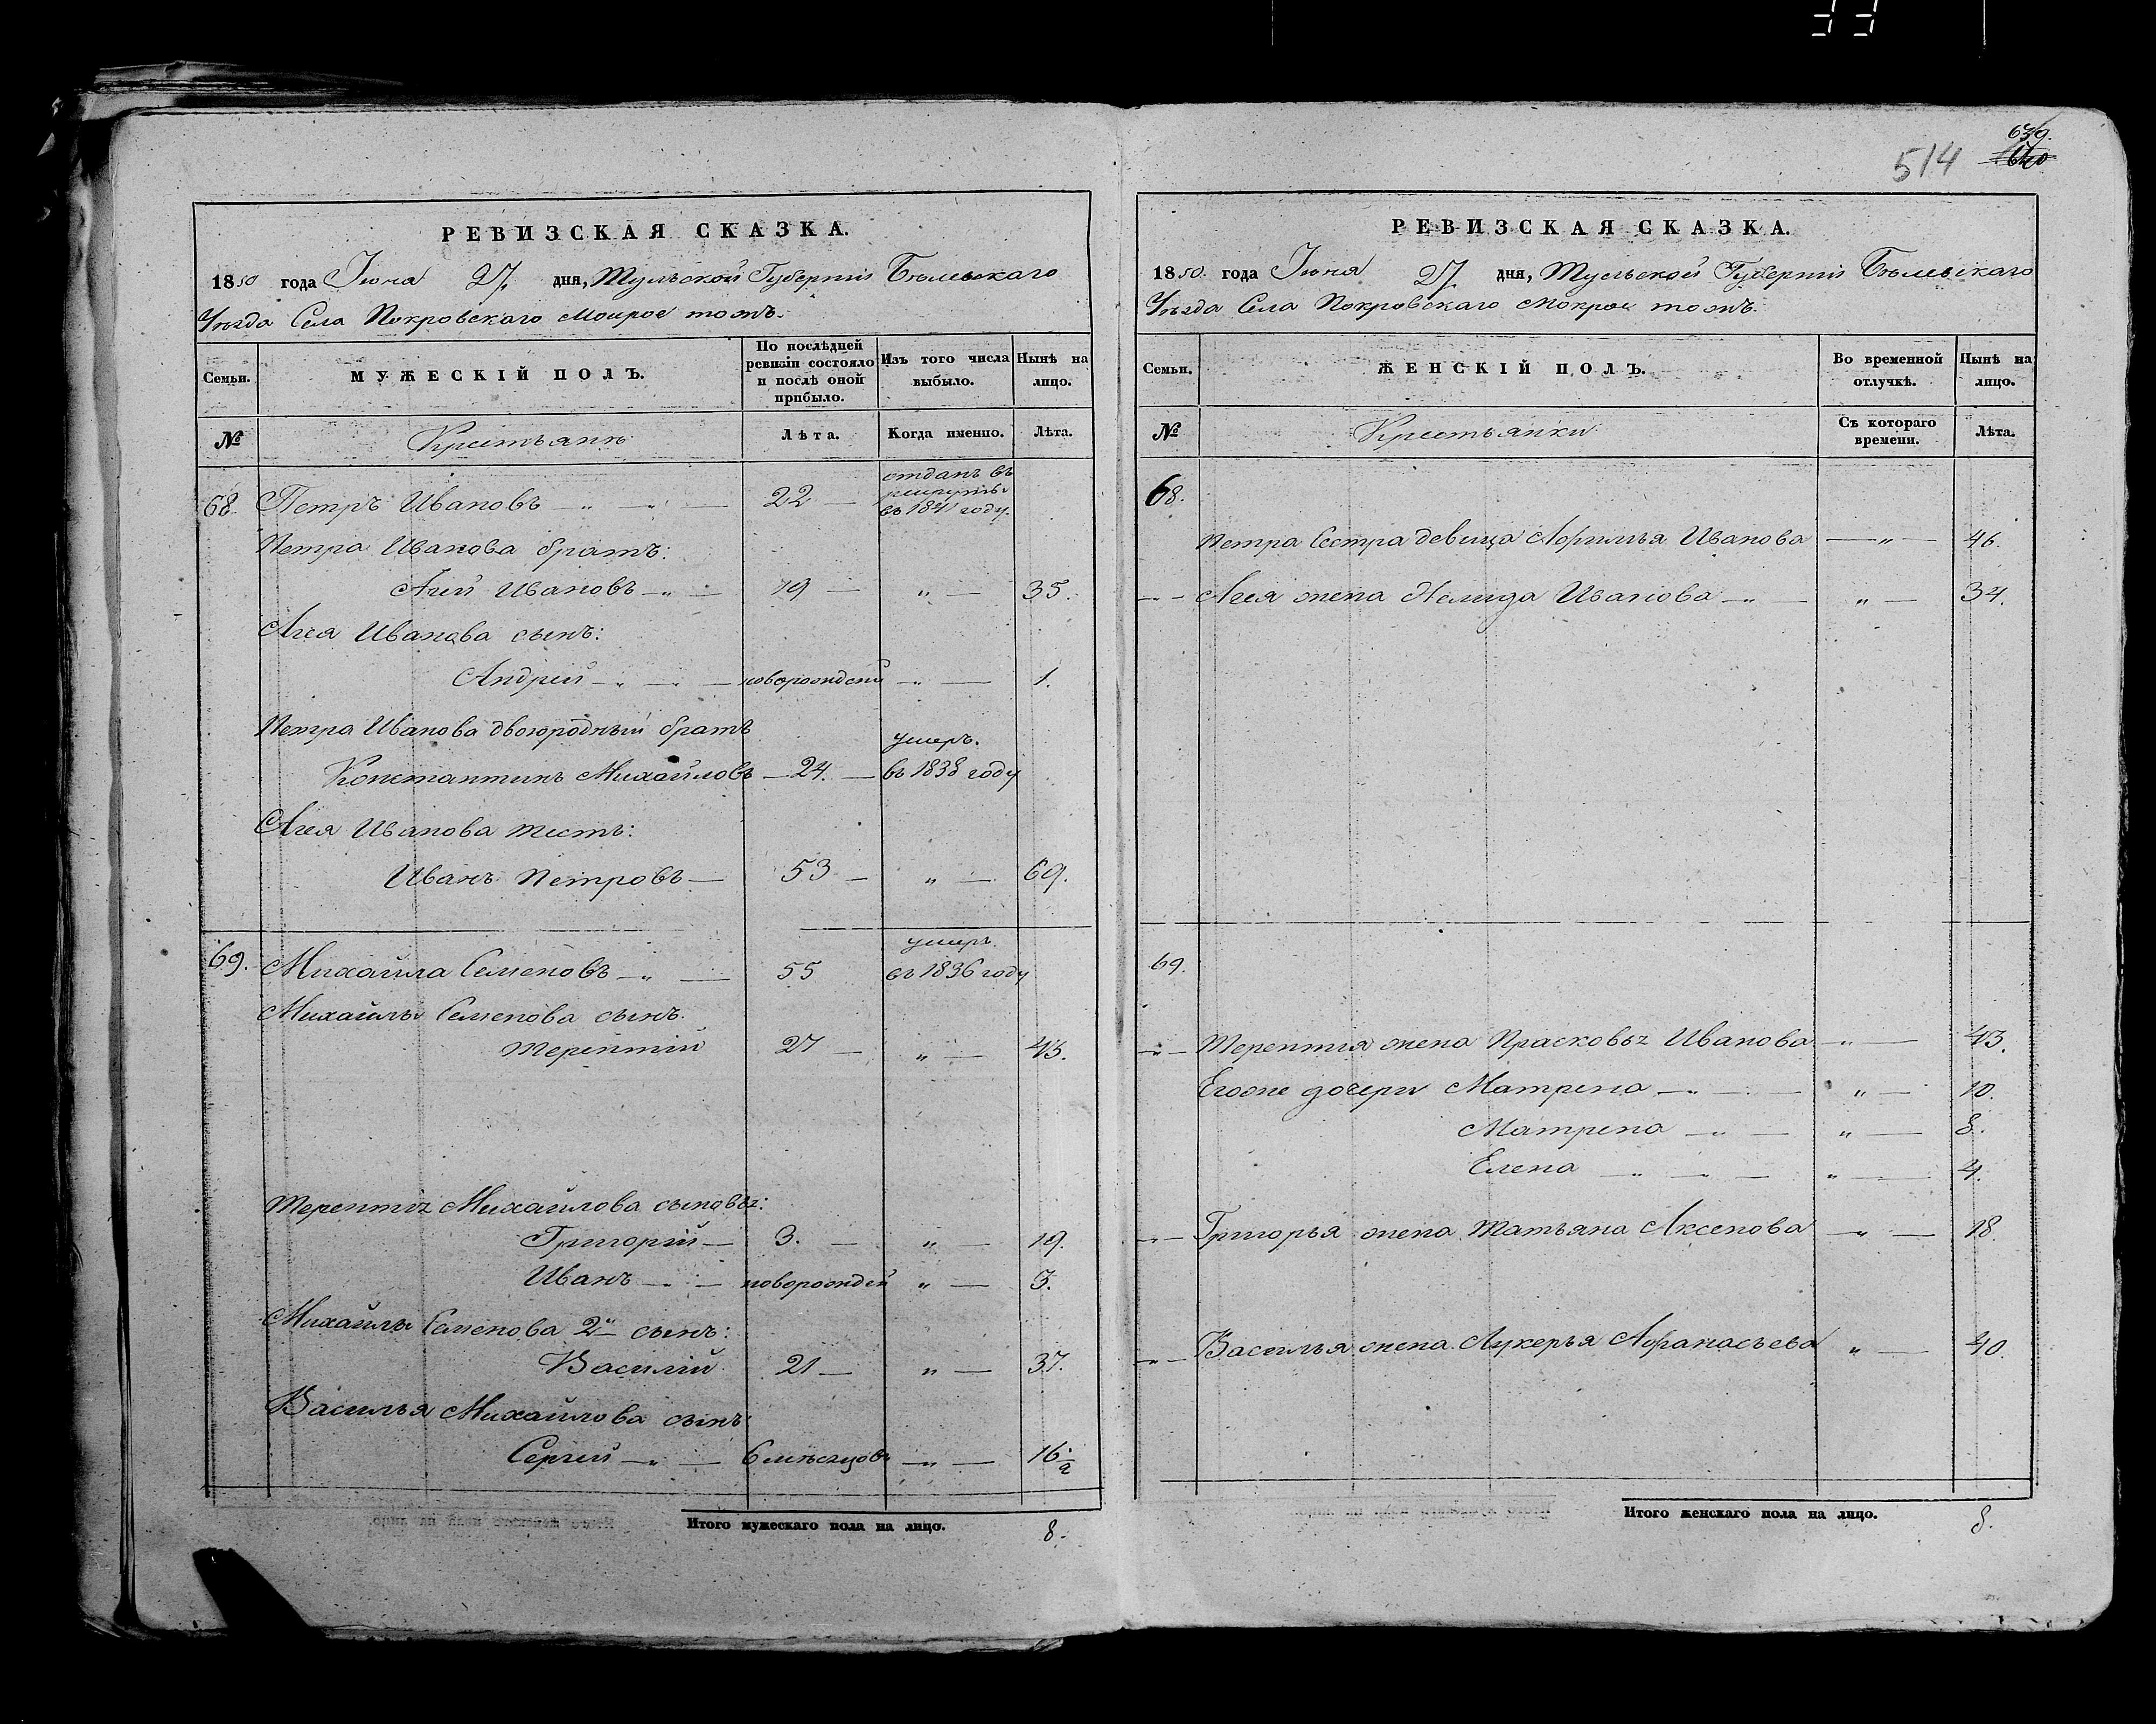 639.
514 640
РЕВИЗСКАЯ СКАЗКА.
1850 года Іюня 27 дня, Тульской Губерніи Бѣлевскаго
Уѣзда Села Покровскаго Мокрое тожъ.
Семьи. МУЖЕСКІЙ ПОЛЪ. По послѣдней ревизіи состояло и послѣ оной прибыло. Изъ того числа выбыло. Нынѣ на лицо.
№ Крестьяне Лѣта. Когда именно. Лѣта.
68. Петръ Ивановъ — " — " — 22 — отданъ въ рекруты въ 1841 году.
Петра Иванова братъ:
Агей Ивановъ — " — 19 — " — 35.
Агея Иванова сынъ:
Андрей — " — " — новорожденій — " — 1.
Петра Иванова двоюродный братъ
Константинъ Михайловъ — 24. — умеръ. въ 1838 году
Агея Иванова тесть:
Иванъ Петровъ — 53 — " — 69.
69. Михайла Семеновъ — " — 55 умеръ въ 1836 году
Михайлы Семенова сынъ.
Терентій 27 — " — 43.
Терентія Михайлова сыновья:
Григорій — 3. — " — 19.
Иванъ — " — новорожден " — 3.
Михайлы Семенова 2й сынъ:
Василій 21 — " — 37.
Василья Михайлова сынъ
Сергей — " — 6 мѣсяцовъ — " — 16 ½
Итого мужескаго пола на лицо. 8.
РЕВИЗСКАЯ СКАЗКА.
1850. года Іюня 27 дня, Тульской Губерніи Бѣлевскаго
Уѣзда Села Покровскаго Мокрое тожъ.
Семьи. ЖЕНСКІЙ ПОЛЪ. Во временной отлучкѣ. Нынѣ на лицо.
№ Крестьянки Съ котораго времени. Лѣта.
68.
Петра Сестра девица Афимья Иванова — " — 46.
— " — Агея жена Иванова — " — " — 34.
69.
— " — Терентія жена Прасковья Иванова — " — 43.
Егоже дочери Матрена — " — " — 10.
Матрена — " — " — 8.
Елена — " — " — " — 4.
— " — Григорья жена Татьяна Аксенова — " — 18.
— " — Василья жена Лукерья Афанасьева " — 40.
Итого женскаго пола на лицо. 8.